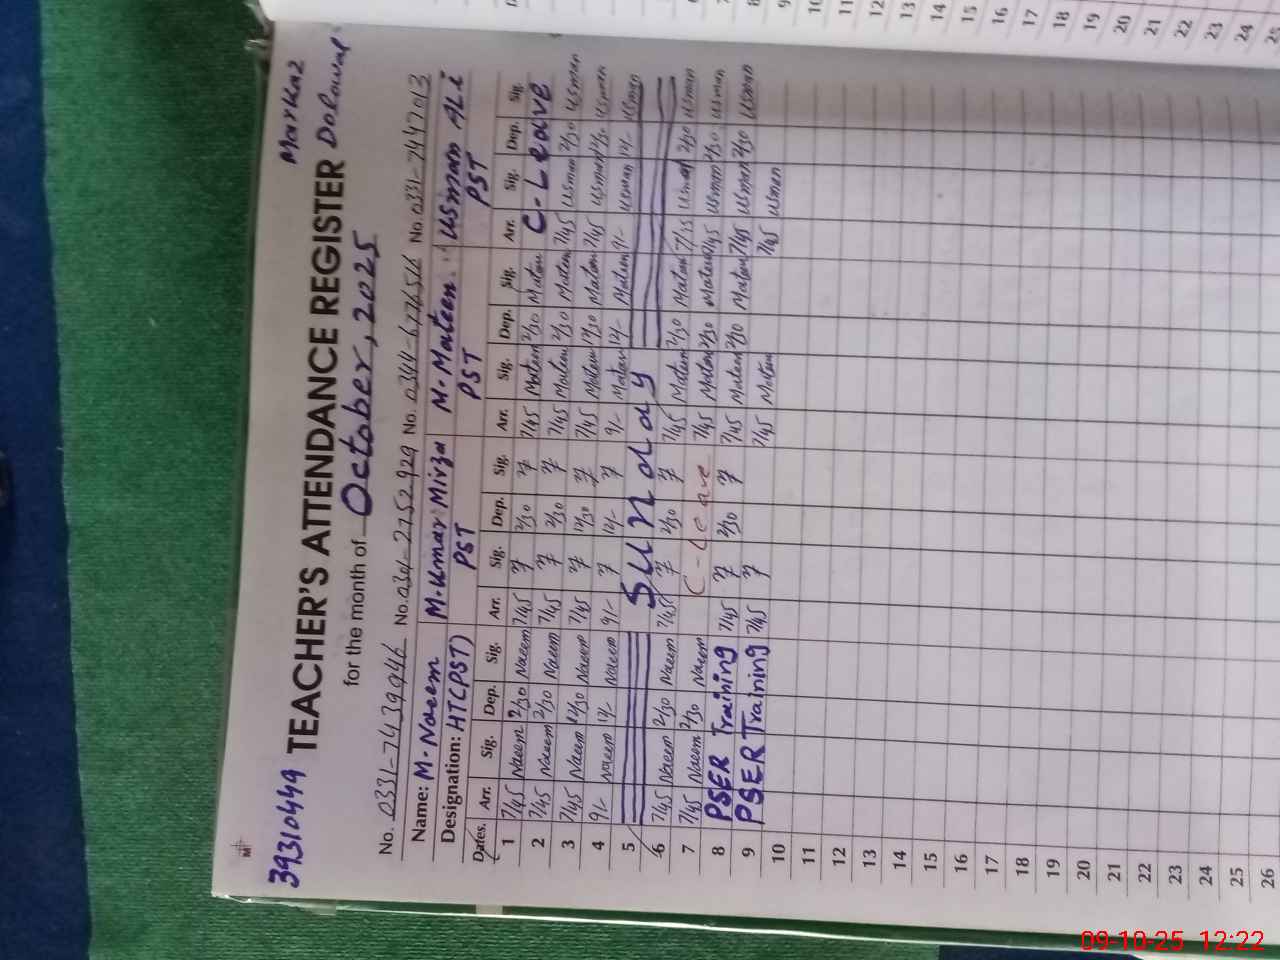 39310449 TEACHER'S ATTENDANCE REGISTER Markaz Dolowal
for the month of October, 2025
No. 0331-7439946 No. 0301-2752929 No. 0344-6776516 No. 0331-7447013
Name: M. Naeem M. Umar Mirza M. Mateen Usman ALi
Designation: HT(PST) PST PST PST
Dates. Arr. Sig. Dep. Sig. Arr. Sig. Dep. Sig. Arr. Sig. Dep. Sig. Arr. Sig. Dep. Sig.
1 7/45 Naeem 2/30 Naeem 7/45 2/30 7/45 Mateen 2/30 Mateen C-Leave
2 7/45 Naeem 2/30 Naeem 7/45 2/30 7/45 Mateen 2/30 Mateen 7/45 Usman 2/30 Usman
3 7/45 Naeem 12/30 Naeem 7/45 12/30 7/45 Mateen 12/30 Mateen 7/45 Usman 12/30 Usman
4 9/- Naeem 12/- Naeem 9/- 12/- 9/- Mateen 12/- Mateen 9/- Usman 12/- Usman
5 Sunday
6 7/45 Naeem 2/30 Naeem 7/45 2/30 7/45 Mateen 2/30 Mateen Usman 2/30 Usman
7 7/45 Naeem 2/30 Naeem C-Leave 7/45 Mateen 2/30 Mateen 7/45 Usman 2/30 Usman
8 PSER Training 7/45 2/30 7/45 Mateen 2/30 Mateen 7/45 Usman 2/30 Usman
9 PSER Training 7/45 7/45 Mateen 7/45 Usman
10
11
12
13
14
15
16
17
18
19
20
21
22
23
24
25
26
7
8
9
10
11
12
13
14
15
16
17
18
19
20
21
22
23
24
25
09-10-25 12:22